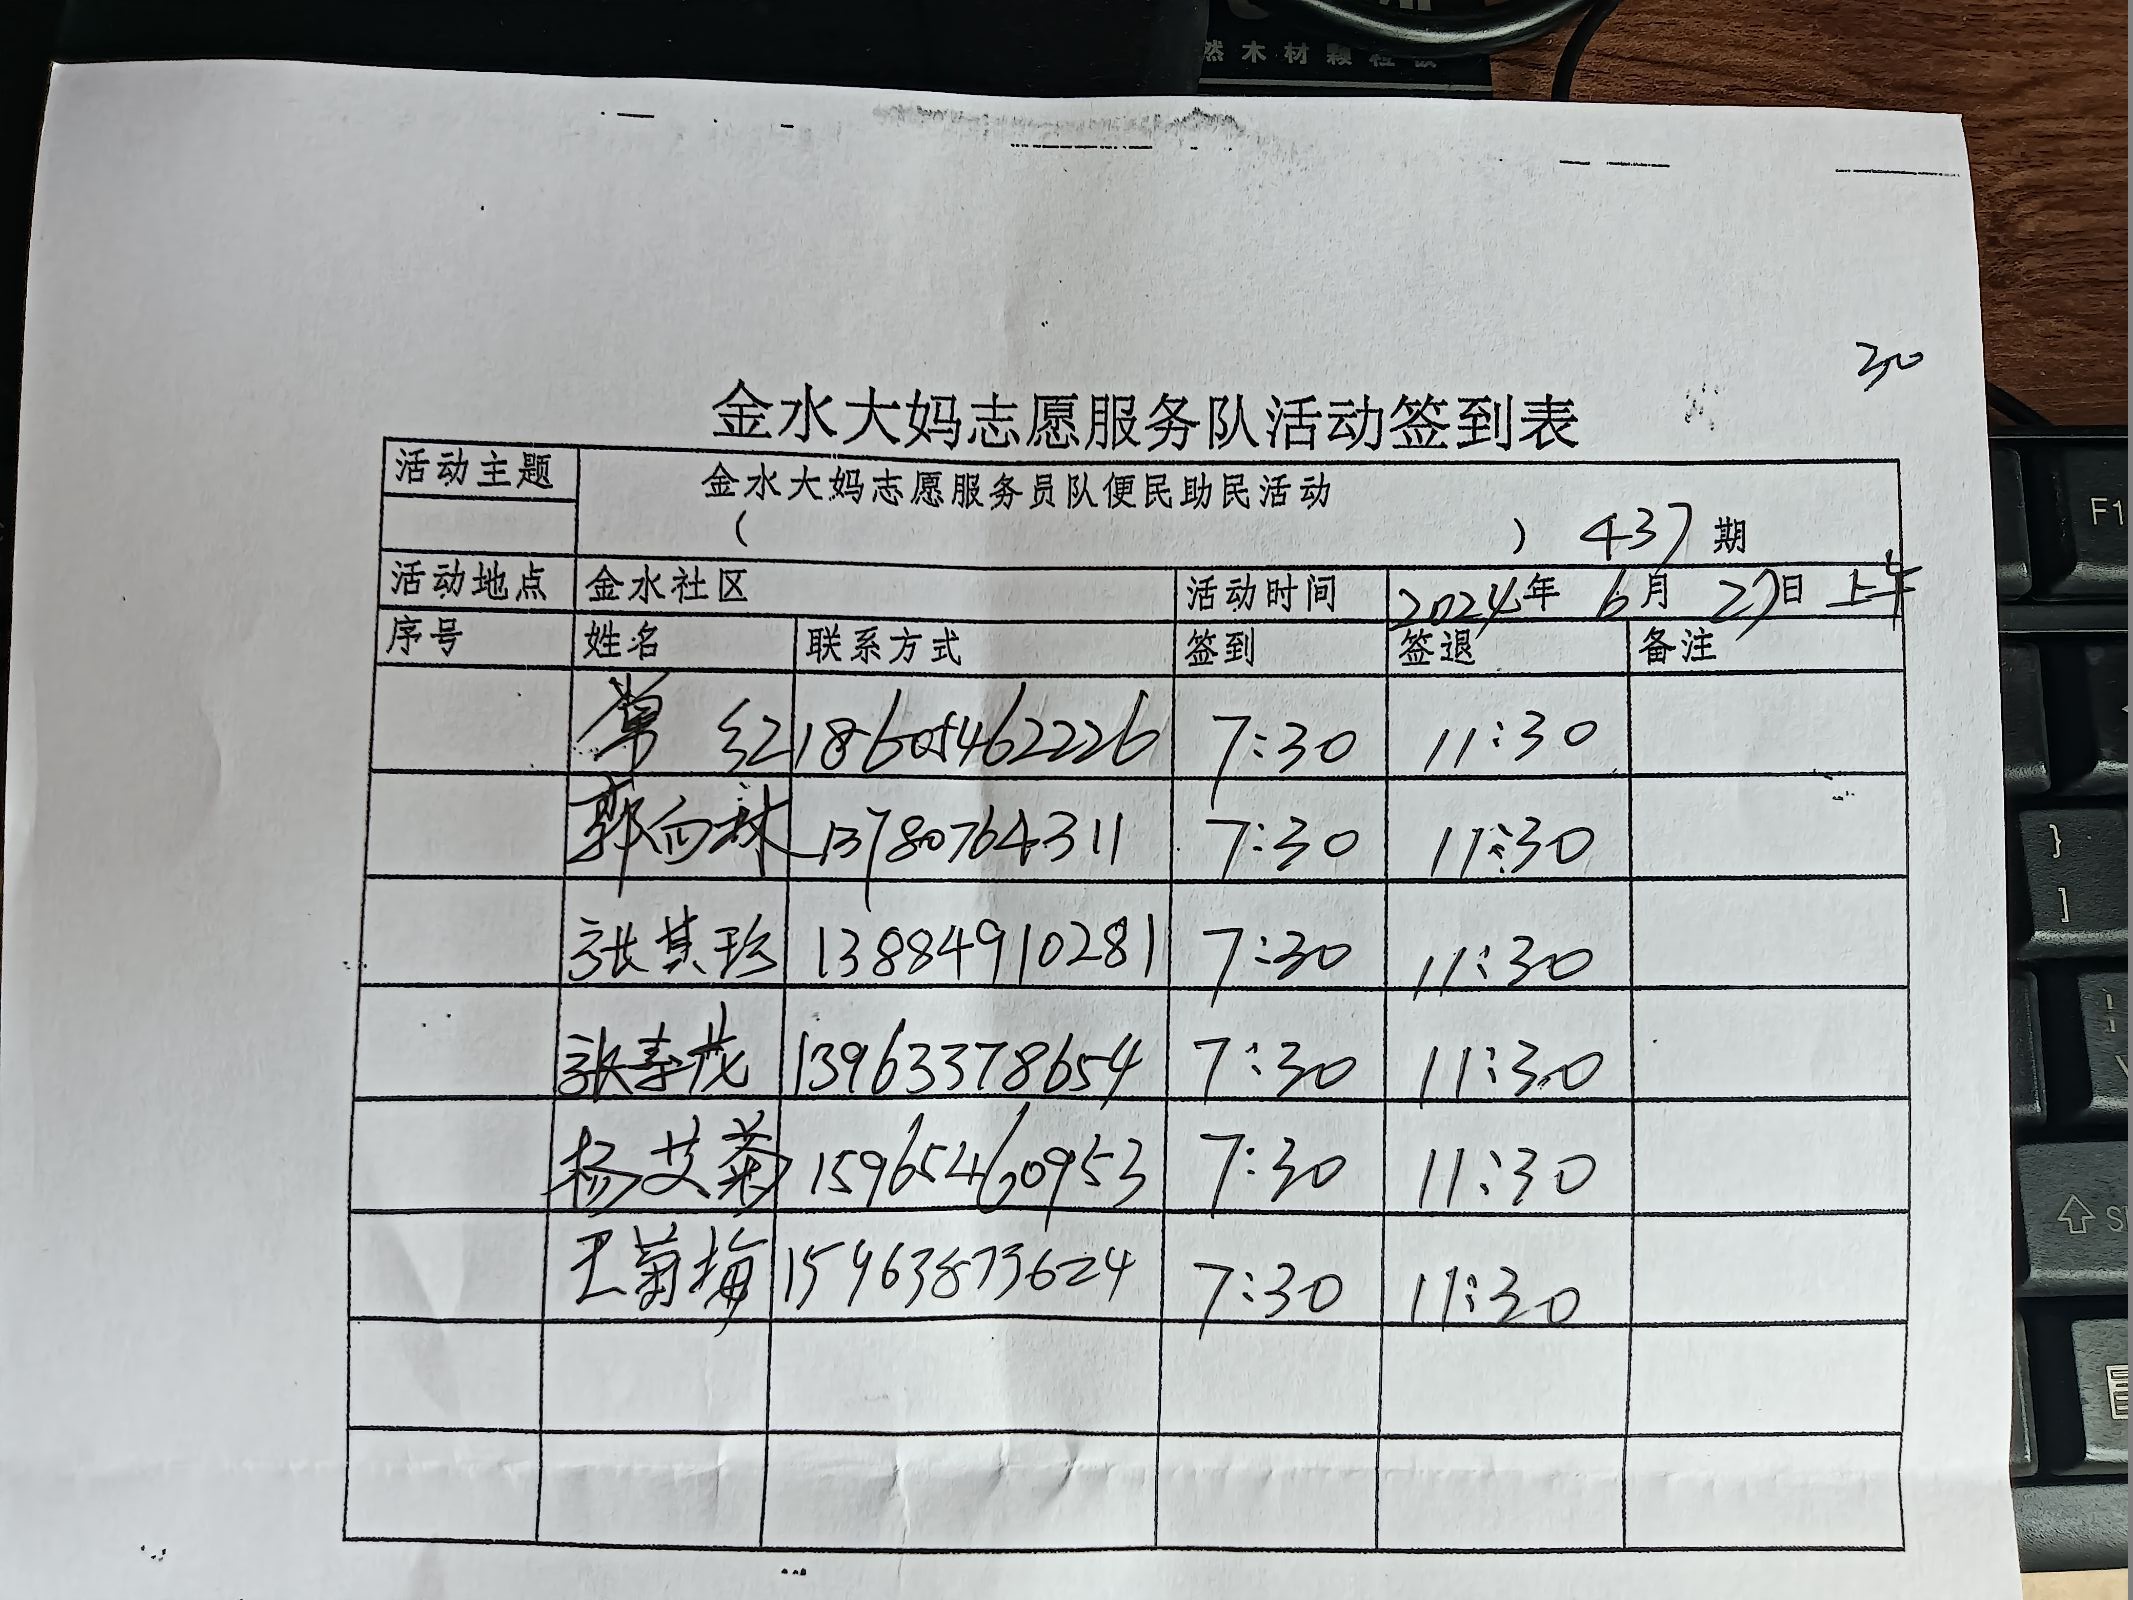 然木材颗粒板
30
金水大妈志愿服务队活动签到表
活动主题 金水大妈志愿服务员队便民助民活动
( ) 437期
活动地点 金水社区 活动时间 2024年 6月 27日 上午
序号 姓名 联系方式 签到 签退 备注
常红 18605462226 7:30 11:30
郭向林 13780764311 7:30 11:30
张其珍 13884910281 7:30 11:30
张春茂 13963378654 7:30 11:30
杨艾菊 15965460953 7:30 11:30
王菊梅 15963873624 7:30 11:30
F1
}
]